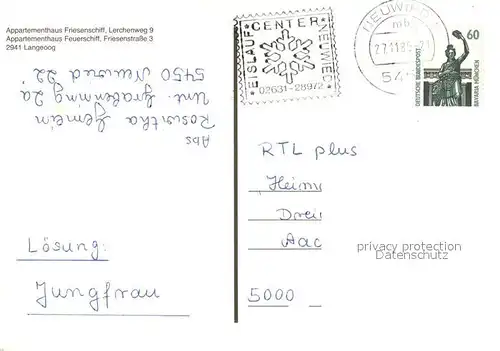 Appartementhaus Friesenschiff, Lerchenweg 9
Appartementhaus Feuerschiff, Friesenstraße 3
2941 Langeoog
Abs
Roswitha
Gemein
Unt. Grabenweg 2a
5450 Neuwied 22
Lösung:
Jungfrau
EISLAUF-CENTER NEUWIED
02631-28972
NEUWIED
mb
27.11.89-21
60
DEUTSCHE BUNDESPOST
BAVARIA MÜNCHEN
RTL plus
Heim
Drei
Aac
5000
privacy protection
Datenschutz